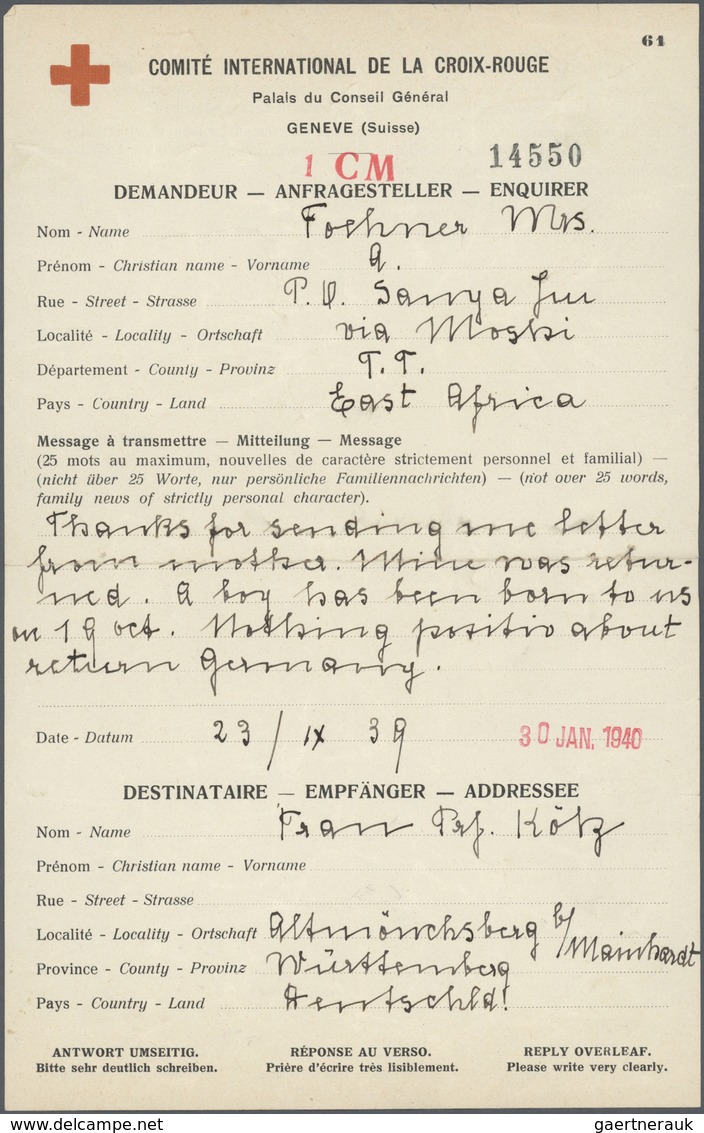 61
COMITÉ INTERNATIONAL DE LA CROIX-ROUGE
Palais du Conseil Général
GENEVE (Suisse)
1 CM 14550
DEMANDEUR — ANFRAGESTELLER — ENQUIRER
Nom - Name Foehner Mrs.
Prénom - Christian name - Vorname A.
Rue - Street - Strasse P.O. Sanya Juu
Localité - Locality - Ortschaft via Moshi
Département - County - Provinz T.T.
Pays - Country - Land East Africa
Message à transmettre — Mitteilung — Message
(25 mots au maximum, nouvelles de caractère strictement personnel et familial) —
(nicht über 25 Worte, nur persönliche Familiennachrichten) — (not over 25 words,
family news of strictly personal character).
Thanks for sending me letter
from mother. Mine was retur-
ned. A boy has been born to us
on 19 oct. Nothing positiv about
return Germany.
Date - Datum 23 / IX 39 30 JAN. 1940
DESTINATAIRE — EMPFÄNGER — ADDRESSEE
Nom - Name Frau Prf. Kötz
Prénom - Christian name - Vorname
Rue - Street - Strasse
Localité - Locality - Ortschaft Altmönchsberg b/Mainhardt
Province - County - Provinz Württemberg
Pays - Country - Land
ANTWORT UMSEITIG. RÉPONSE AU VERSO. REPLY OVERLEAF.
Bitte sehr deutlich schreiben. Prière d'écrire très lisiblement. Please write very clearly.
gaertnerauk